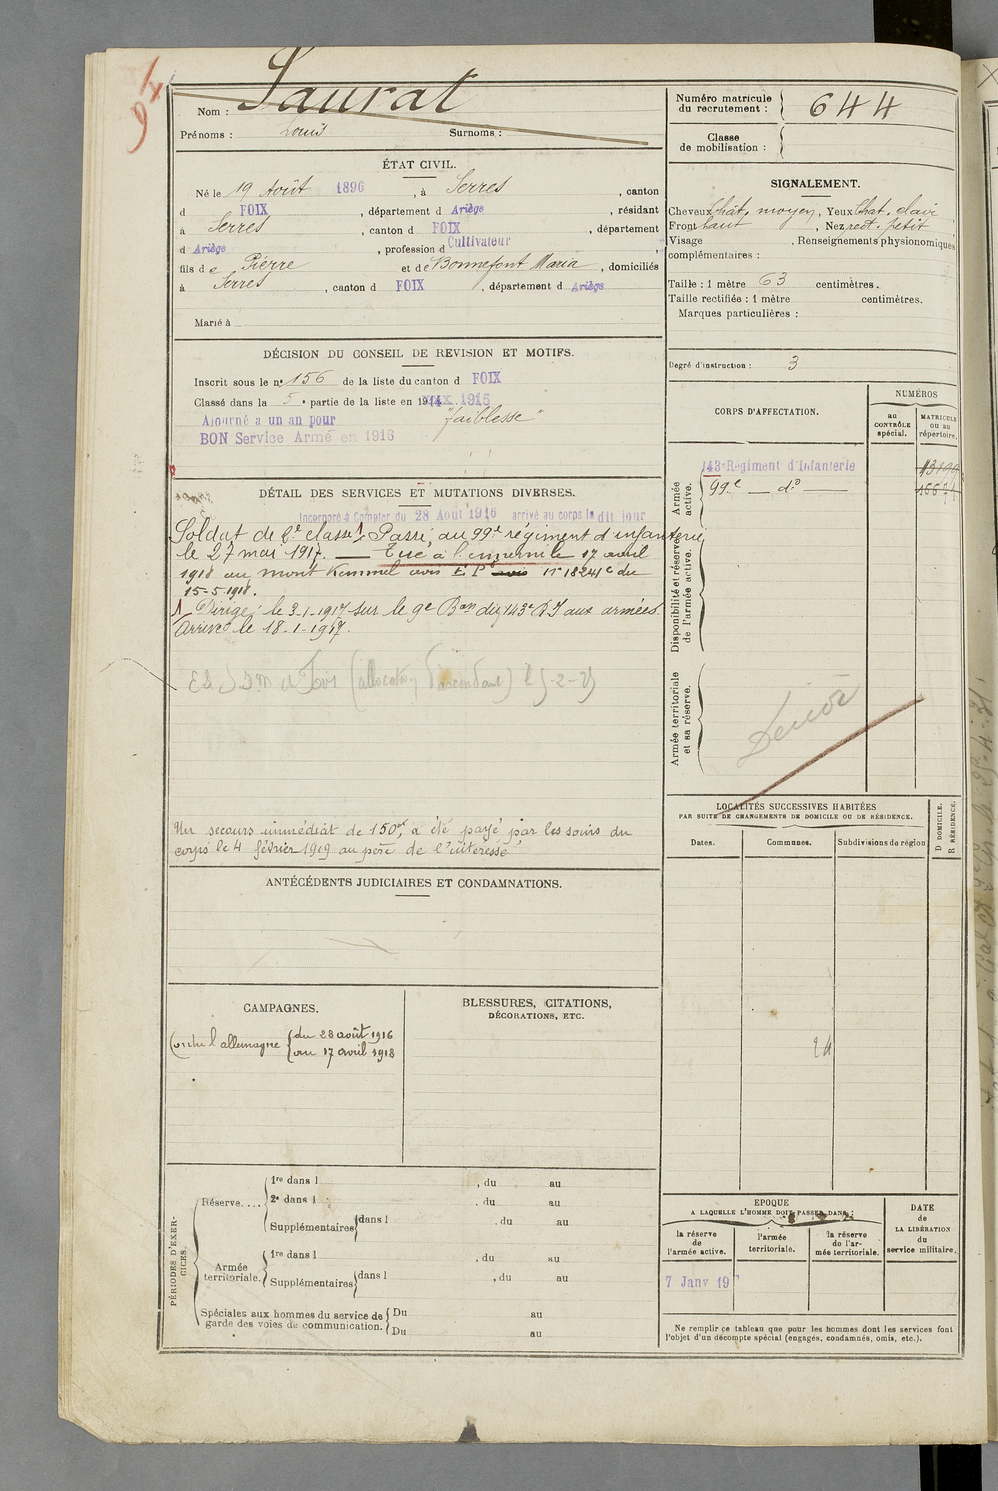 94
Nom : Saurat
Prénoms : Louis Surnoms :
Numéro matricule du recrutement : 644
Classe de mobilisation :
ÉTAT CIVIL.
Né le 19 Août 1896, à Serres, canton
d FOIX, département d Ariège, résidant
à Serres, canton d FOIX, département
d Ariège, profession d Cultivateur,
fils de Pierre et de Bonnefont Maria, domiciliés
à Serres, canton d FOIX, département d Ariège
Marié à
SIGNALEMENT.
Cheveux Chât. moyen, Yeux Chat. clair
Front haut, Nez rect. petit
Visage , Renseignements physionomiques
complémentaires :
Taille : 1 mètre 63 centimètres.
Taille rectifiée : 1 mètre centimètres.
Marques particulières :
Degré d'instruction : 3
DÉCISION DU CONSEIL DE REVISION ET MOTIFS.
Inscrit sous le n° 156 de la liste du canton d FOIX
Classé dans la 5e partie de la liste en 1915
Ajourné a un an pour "faiblesse"
BON Service Armé en 1916
DÉTAIL DES SERVICES ET MUTATIONS DIVERSES.
Incorporé à Compter du 28 Août 1916 arrivé au corps le dit jour
Soldat de 2e classe. 1 Passé au 99e régiment d'infanterie
le 27 mai 1917. — Tué à l'ennemi le 17 avril
1918 au mont Kemmel avis E. P. avis n° 18241 C du
15-5-1918.
1 Dirigé le 3-1-1917 sur le 9e Bon du 143e RI aux armées.
Arrivé le 18-1-1917.
Un secours immédiat de 150f, a été payé par les soins du
corps le 4 février 1919 au père de l'intéressé
CORPS D'AFFECTATION.
NUMÉROS
au CONTRÔLE spécial.
MATRICULE ou au répertoire.
Armée active.
143e Régiment d'Infanterie
99e — do —
Disponibilité et réserve de l'armée active.
Armée territoriale et sa réserve.
LOCALITÉS SUCCESSIVES HABITÉES
PAR SUITE DE CHANGEMENTS DE DOMICILE OU DE RÉSIDENCE.
Dates. Communes. Subdivisions de région
D DOMICILE.
R RÉSIDENCE.
ANTÉCÉDENTS JUDICIAIRES ET CONDAMNATIONS.
CAMPAGNES.
Contre l'allemagne du 28 août 1916
au 17 avril 1918
BLESSURES, CITATIONS,
DÉCORATIONS, ETC.
PÉRIODES D'EXERCICES.
Réserve....
1re dans l , du au
2e dans l , du au
Supplémentaires dans l , du au
Armée territoriale.
1re dans l , du au
Supplémentaires dans l , du au
Spéciales aux hommes du service de garde des voies de communication.
Du au
Du au
EPOQUE
A LAQUELLE L'HOMME DOIT PASSER DANS :
la réserve de l'armée active.
l'armée territoriale.
la réserve de l'armée territoriale.
DATE de LA LIBÉRATION du service militaire.
7 Janv 19
Ne remplir ce tableau que pour les hommes dont les services font
l'objet d'un décompte spécial (engagés, condamnés, omis, etc.).